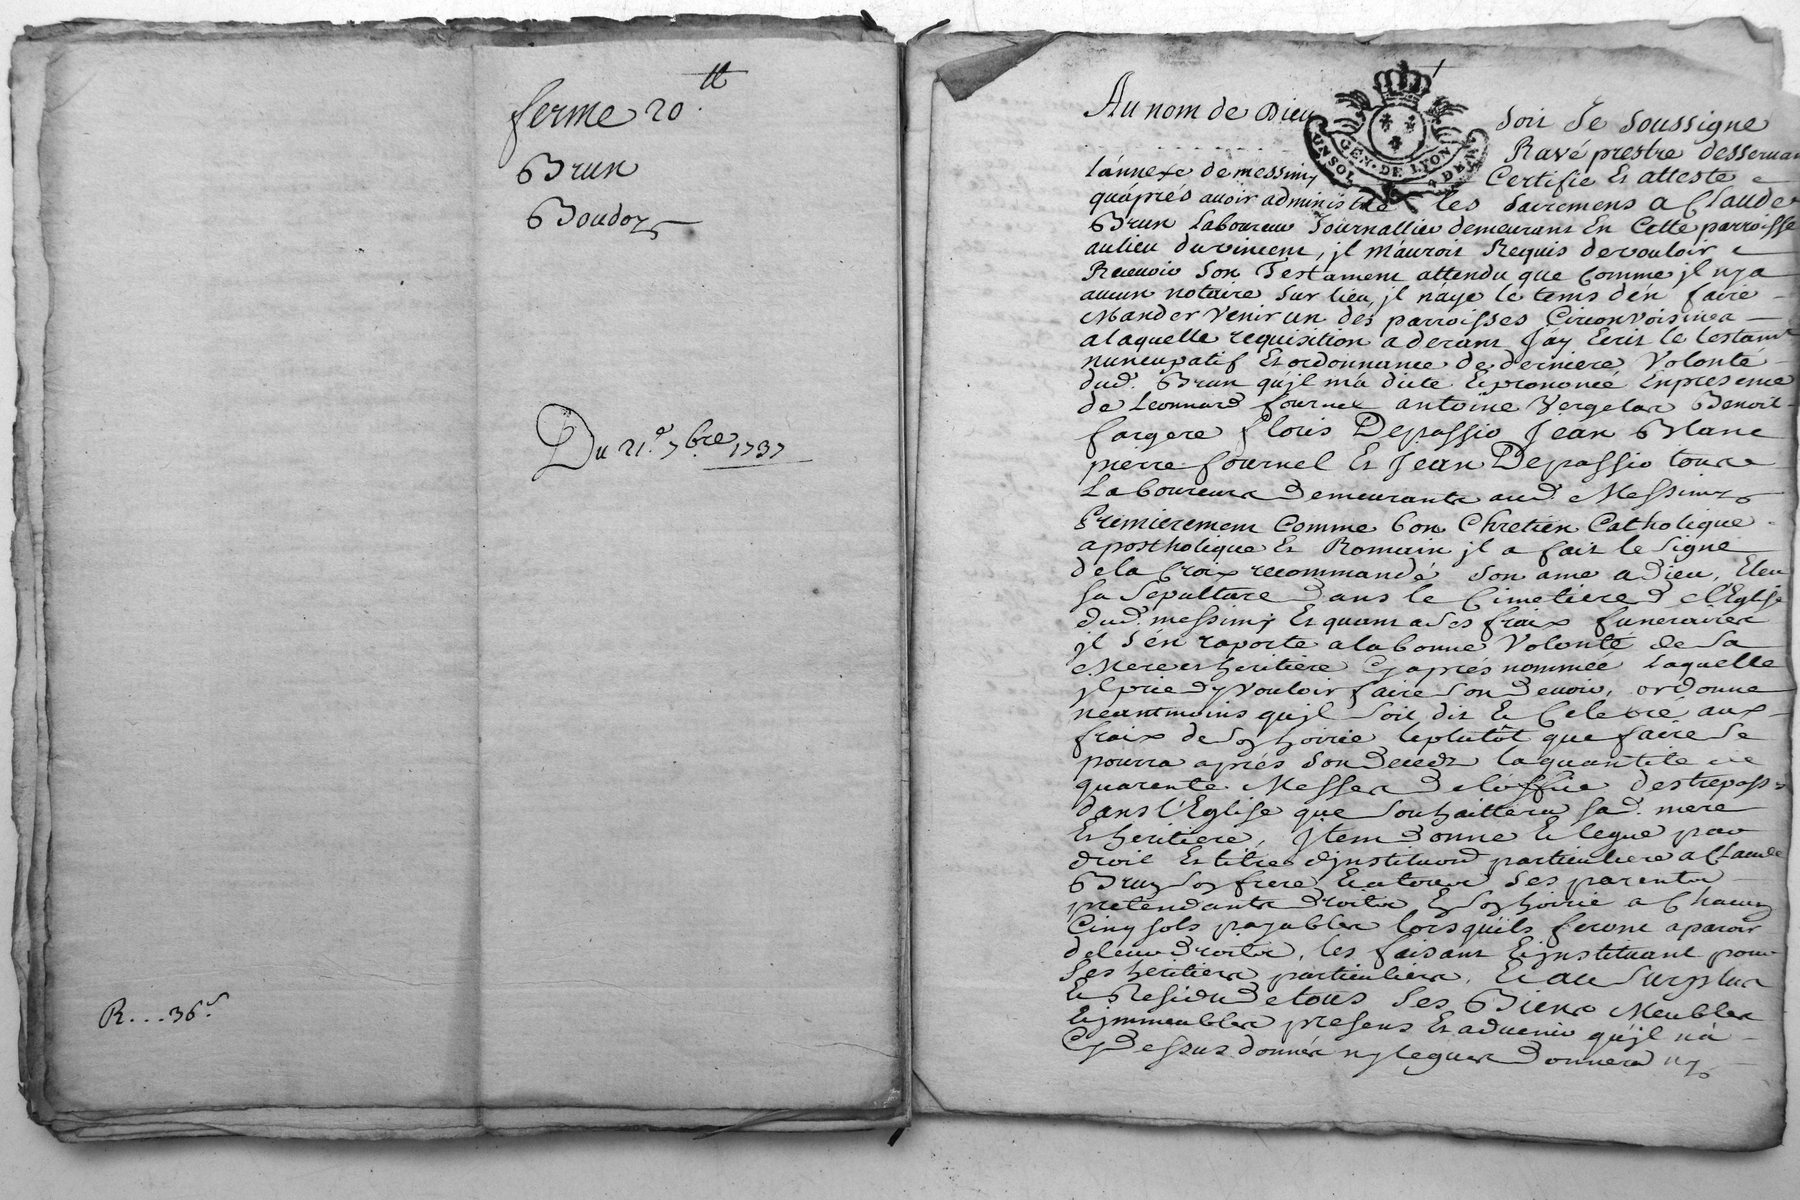 ferme 20.tt
Brun
Boudoy
Du 21.e 7.bre 1737
R...36.s
Au nom de Dieu soit Je soussigne
GEN. DE LYON
UN SOL 4 DEN.
Ravé prestre desservan
lánnexe de messimy Certifie Et atteste
quáprés avoir administré les sacremens a Claude
Brun Laboureur Journallier demeurant En Cette parroisse
au lieu du vincent, jl m'auroit Requis de vouloir
Recevoir Son Testament attendu que Comme jl ny a
aucun notaire Sur lieu, jl náye le tems dén faire
Mander Venir un des parroisses Circonvoisines
a laquelle requisition aderant J'áy Ecrit le testamt
nuncupatif Et ordonnance de derniere Volonté
dud. Brun qujl má dicté Et prononcé En presence
de Leonnard fournel antoine Vergelas Benoit
fargere floris Depassio Jean Blanc
pierre fournel Et Jean Depassio tous
Laboureurs Demeurants aud. Messimy
Premierement Comme bon Chretien Catholique
apostholique Et Romain jl a fait le Signe
de la Croix recommandé Son ame a Dieu, Eleu
sa Sepulture Dans le Cimetiere D el'Eglise
dud. messimy Et quant a Ses fraix funeraires
jl S'én raporte a la bonne Volonté de Sa
Mere et heritiere Cy aprés nommée Laquelle
jl prie dy vouloir faire Son Devoir, ordonne
neantmoins qujl Soit dit Et Celebré aux
fraix de Soy hoirie leplutôt que faire Se
pourra aprés Son Decedz la quantité de
quarente Messes De lóffice des trepass
dans l'Eglise que Souhaittera sad. mere
Et heritiere, Jtem Donne Et legue par
droit Et titre d'jnstitution particuliere a Claude
Bruy Soy frere Et a tous Ses parents
pretendants Droits En Soy hoirie a Chacuy
Cinq sols payables lorsquíls feront aparoir
de leur Droits, les faisant Et jnstituant pour
Ses heritiers particuliers, Et au Surplus
Et Residu De tous Ses Biens Meubles
Et jmmeubles presens Et advenir qujl ná
Cy Dessus donnés ny legués Donnera ny